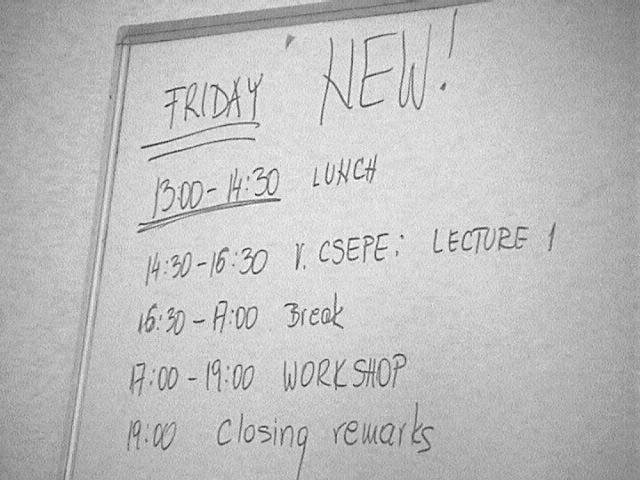 FRIDAY NEW!
13:00 - 14:30 LUNCH
14:30 - 16:30 V. CSEPE: LECTURE 1
16:30 - 17:00 Break
17:00 - 19:00 WORKSHOP
19:00 Closing remarks